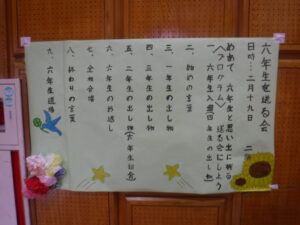 六年生を送る会
日時…二月十九日 二
めあて 六年生と思い出に残る
送る会にしよう
〈プログラム〉
一、六年生入場(四年生の出し物)
二、始めの言葉
三、一年生の出し物
四、三年生の出し物
五、二年生の出し物
六、六年生のお返し
七、全校合唱
八、終わりの言葉
九、六年生退場